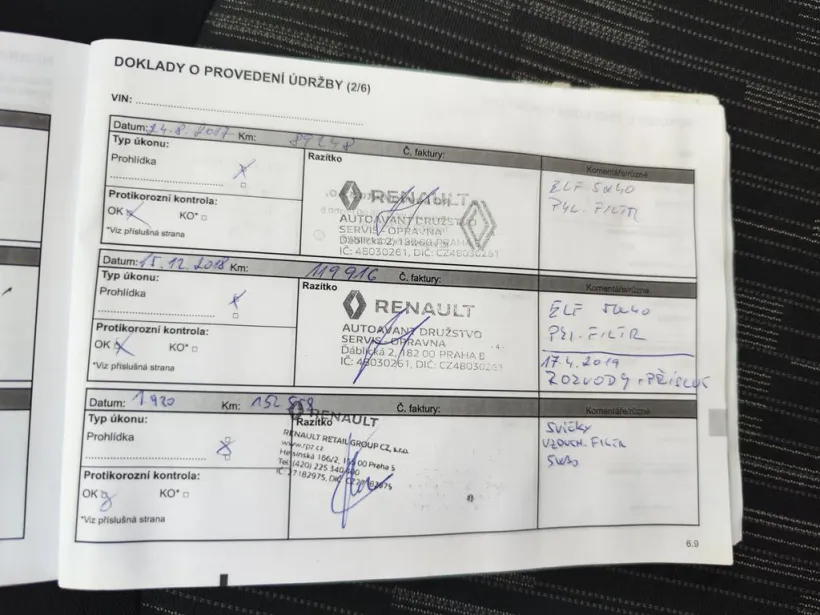 DOKLADY O PROVEDENÍ ÚDRŽBY (2/6)
VIN:
Datum: 24.8.2017 Km: Č. faktury:
Typ úkonu: Razítko Komentáře/různé
Prohlídka x
ELF 5W40
PYL. FILTR
RENAULT
Protikorozní kontrola:
OK x KO*
*Viz příslušná strana
AUTOAVANT DRUŽSTVO
SERVIS - OPRAVNA
Ďáblická 2, 182 00 PRAHA
IČ: 48030261, DIČ: CZ48030261
Datum: 15.12.2018 Km: 119916 Č. faktury:
Typ úkonu: Razítko Komentáře/různé
Prohlídka x
ELF 5W40
PYL. FILTR
RENAULT
Protikorozní kontrola:
OK x KO*
*Viz příslušná strana
AUTOAVANT DRUŽSTVO
SERVIS - OPRAVNA
Ďáblická 2, 182 00 PRAHA 8
IČ: 48030261, DIČ: CZ48030261
17.4.2019
ROZVODY + PŘÍSLUŠ
Datum: 1.920 Km: 152 Č. faktury:
Typ úkonu: Razítko Komentáře/různé
Prohlídka x
SVÍČKY
VZDUCH. FILTR
5W30
RENAULT
RENAULT RETAIL GROUP CZ, s.r.o.
Protikorozní kontrola:
OK KO*
*Viz příslušná strana
Tel: (420) 225 340 400
IČ: 27182975, DIČ: CZ27182975
6.9